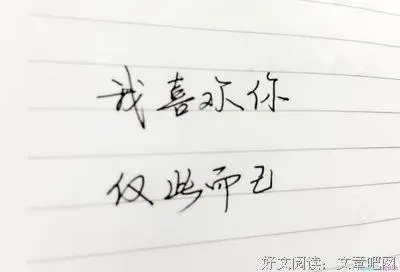 我喜欢你
仅此而已
好文阅读：文章吧网